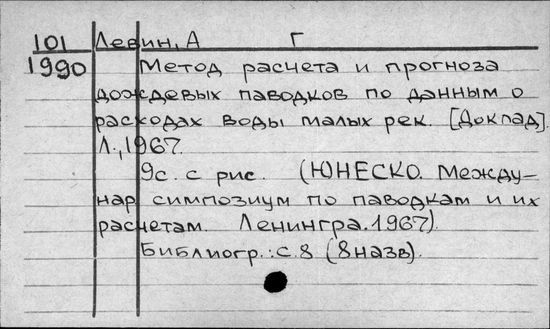 101 Левин, А Г
1990 Метод расчета и прогноза
дождевых паводков по данным о
расходах воды малых рек. [Доклад].
Л., 1967.
9с. с рис. (ЮНЕСКО. Между-
нар симпозиум по паводкам и их
расчетам. Ленингра. 1967).
Библиогр.: с. 8 (8 назв).